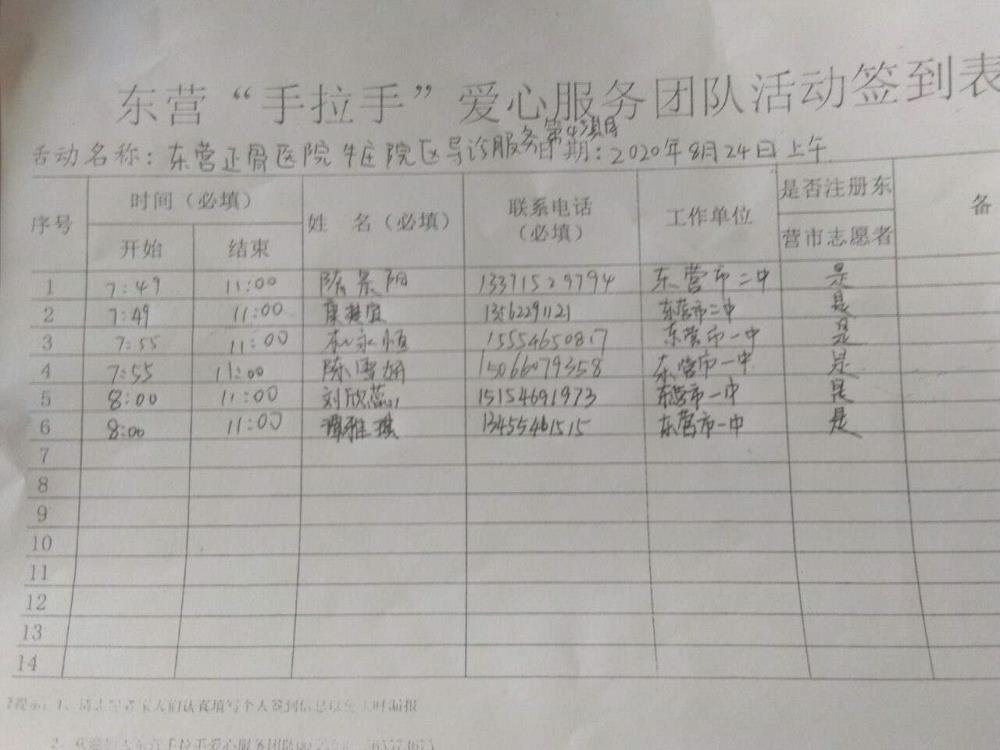 东营“手拉手”爱心服务团队活动签到表
第4项目
活动名称：东营正骨医院牛庄院区导诊服务日期：2020年8月24日上午
序号 时间（必填） 姓 名（必填） 联系电话（必填） 工作单位 是否注册东营市志愿者 备
开始 结束
1 7:49 11:00 陈景阳 13371529794 东营市二中 是
2 7:49 11:00 13562291121 东营市二中 是
3 7:55 11:00 永恒 15554650817 东营市一中 是
4 7:55 11:00 陈雪娟 15066079358 东营市一中 是
5 8:00 11:00 刘欣蕊 15154691973 东营市一中 是
6 8:00 11:00 谭雅琪 13455461515 东营市一中 是
7
8
9
10
11
12
13
14
提示：1、请志愿者家人们认真填写个人签到信息以免工时漏报
2、